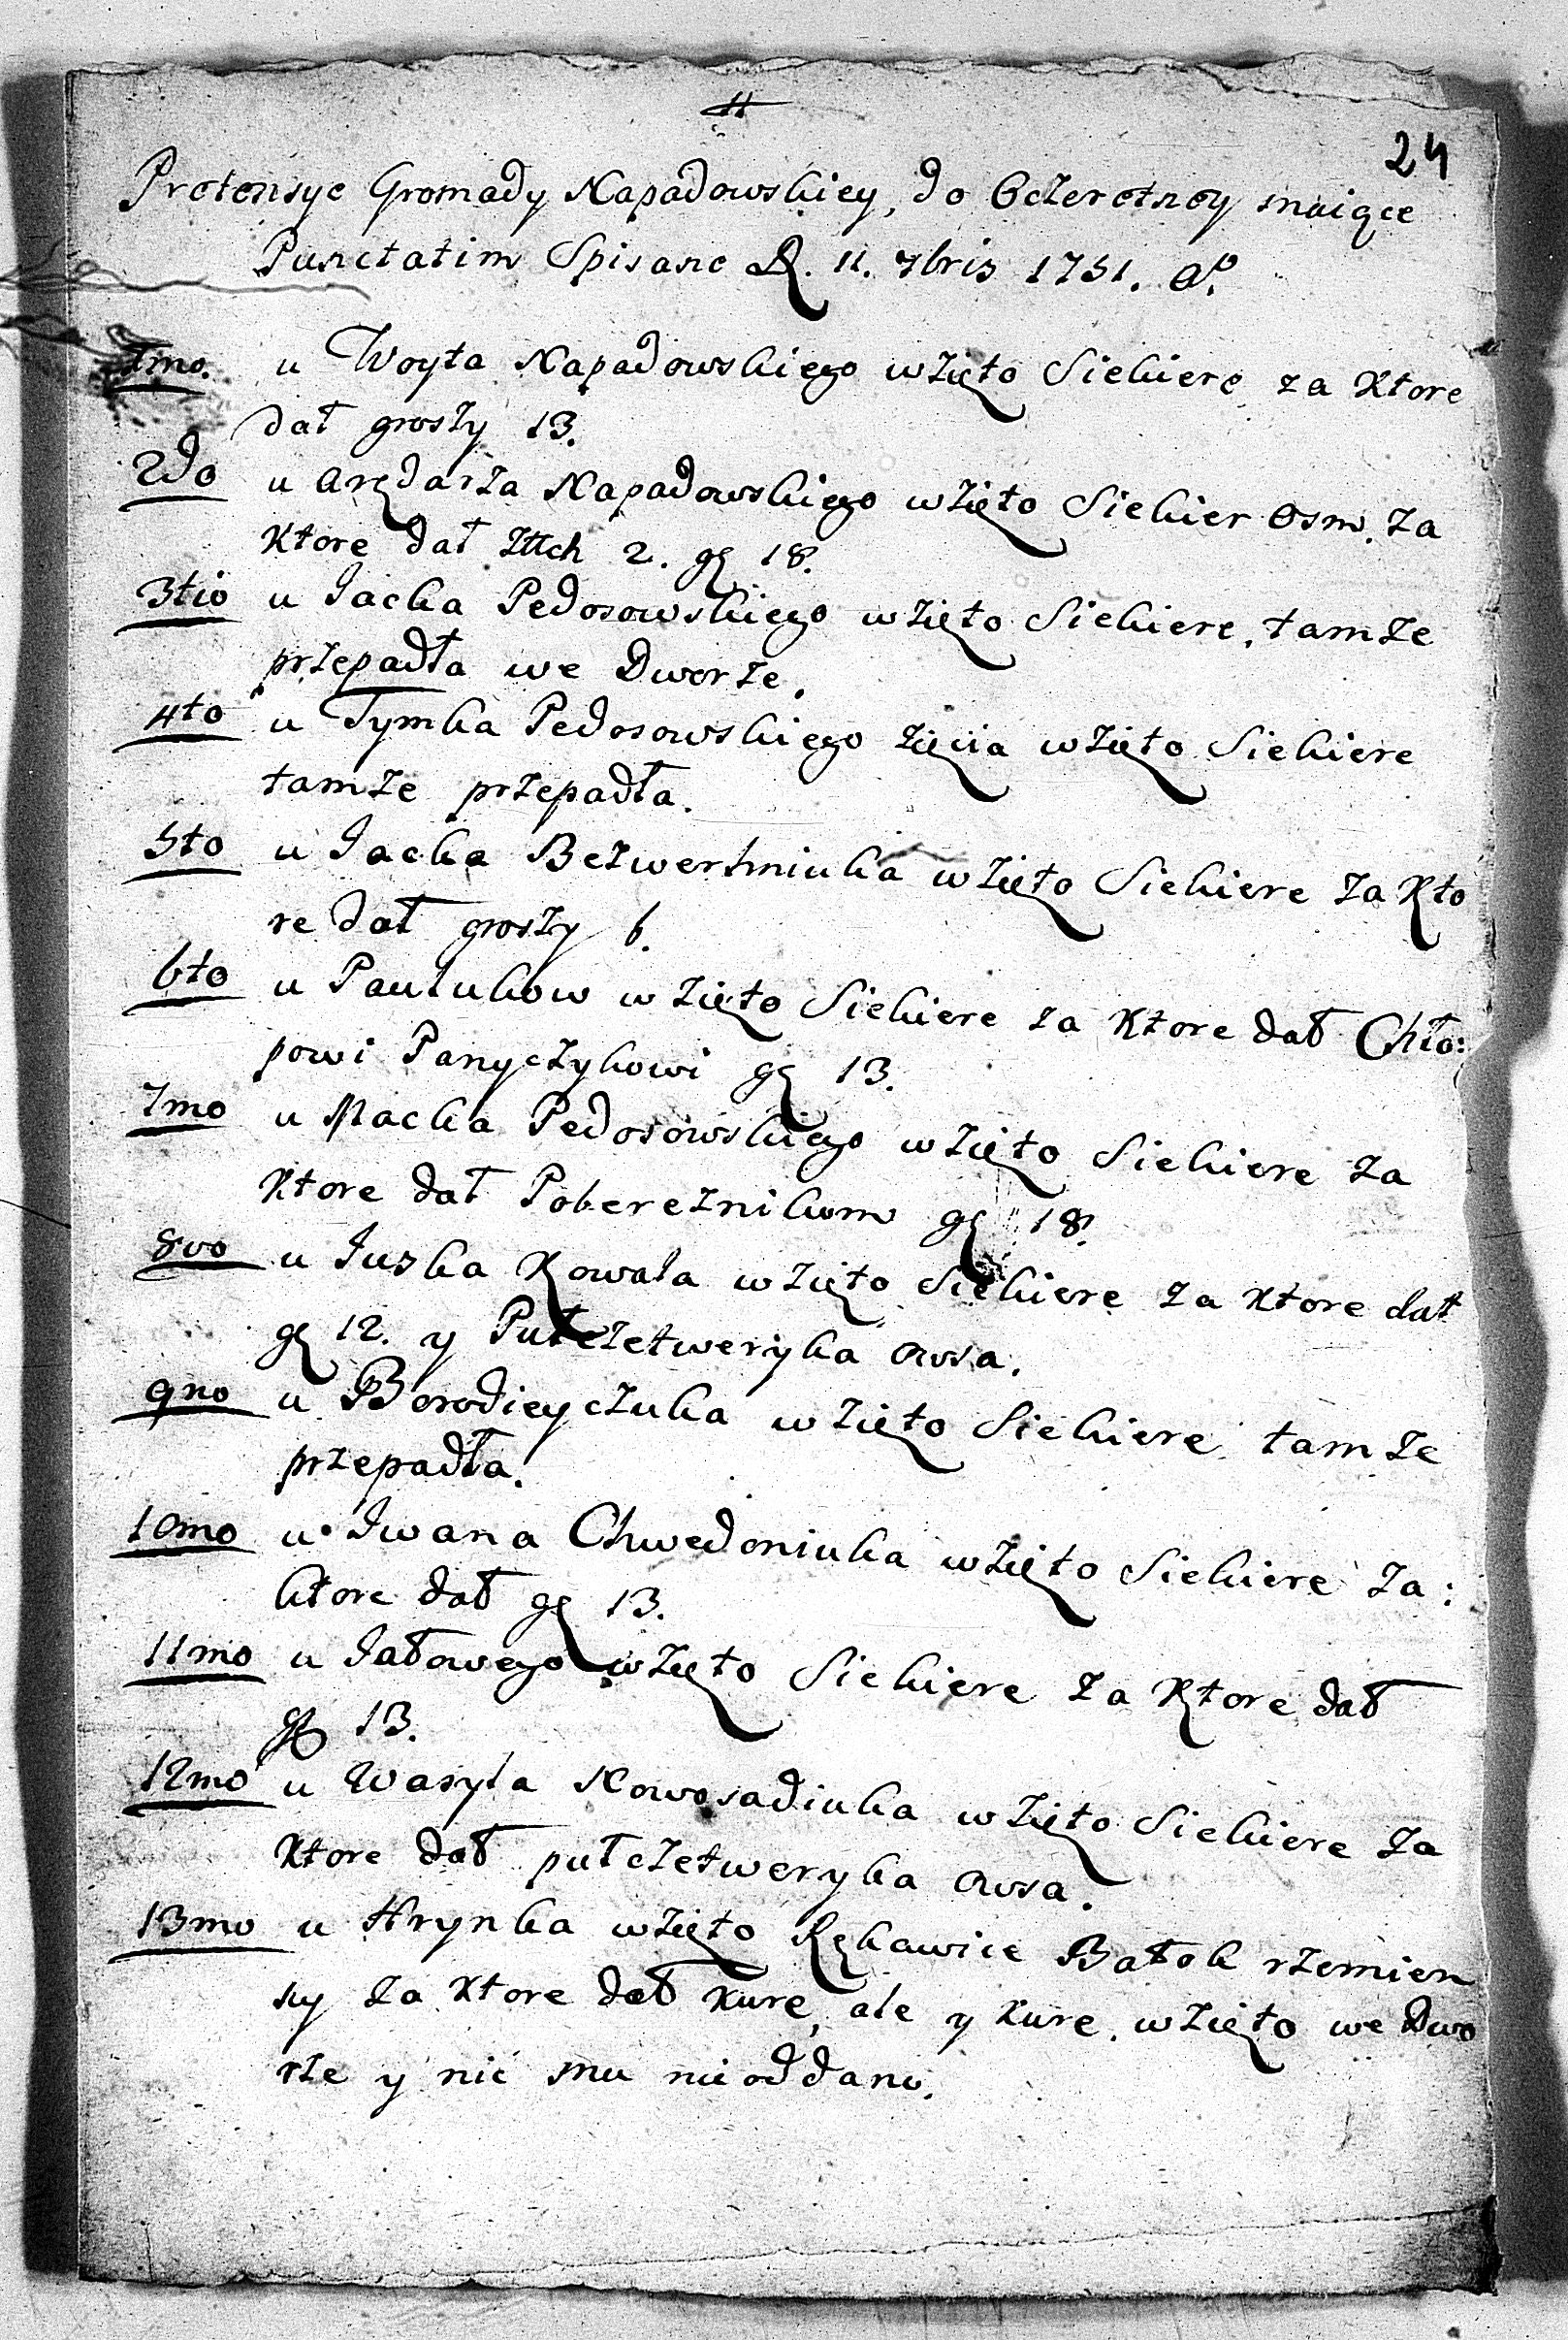 24
Pretensye Gromady Napadowskiey, do Oczeretney maiące
Punctatim Spisane D. 11. 7bris 1751. Ao.
1mo. u Woyta Napadowskiego wzięto Siekiere za Ktore
dał groszy 13.
2do u Arędarza Napadowskiego wzięto Siekier Osm. za
Ktore dał złłch 2. gę 18.
3tio u Jacka Pedosowskiego wzięto Siekiere, tamze
przepadła we Dworze.
4to u Tymka Pedosowskiego zięcia wzięto Siekiere
tamze przepadła.
5to u Jacka Bezwerhniuka wzięto Siekiere za Kto
re dał groszy 6.
6to u Pawlukow wzięto Siekiere za Ktore dał Chło:
powi Panyczykowi gę 13.
7mo u Macka Pedosowskiego wzięto Siekiere za
Ktore dał Pobereznikom gę 18.
8vo u Juska Kowala wzięto Siekiere za Ktore dał
gę 12. y Pułczetweryka Owsa.
9no u Borodieyczuka wzięto Siekiere tamze
przepadła.
10mo u Iwana Chwedoniuka wzięto Siekiere za:
ktore dał gę 13.
11mo u Jałowego wzięto Siekiere za Ktore dał
13.
12mo u Wasyla Nowosadiuka wzięto Siekiere za
Ktore dał pułczetweryka Owsa.
13mo u Hrynka wzięto Rękawice Batok rzemien
ny za Ktore dał Kure, ale y Kure wzięto we Dwo
rze y nic mu nieoddano.